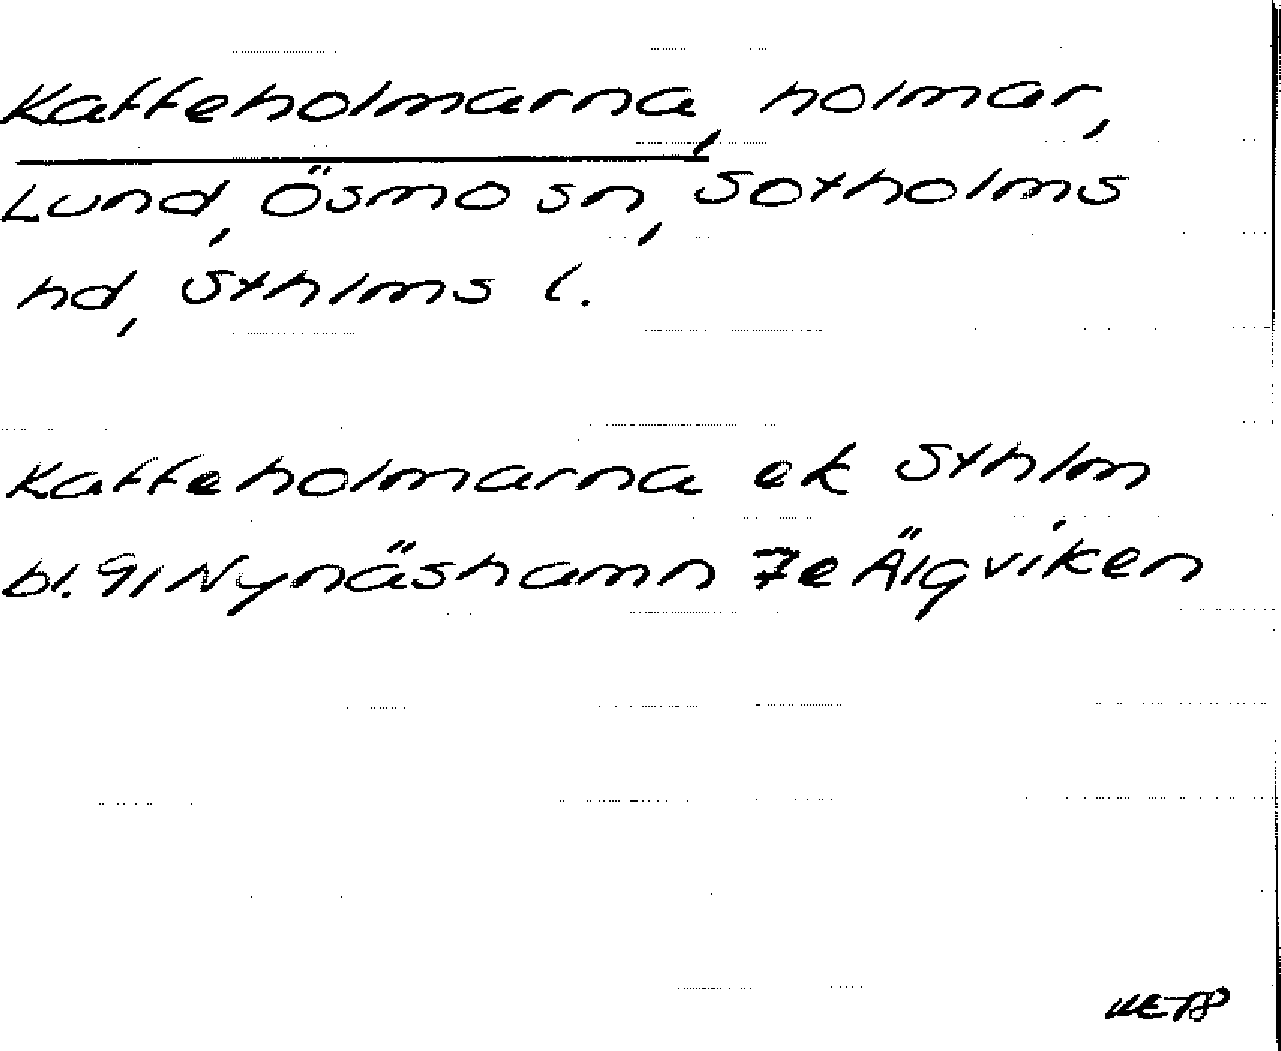 Kaffeholmarna, holmar,
Lund, Ösmo sn, Sotholms
hd, Sthlms l.
Kaffeholmarna ek Sthlm
bl. 91 Nynäshamn 7e Älgviken